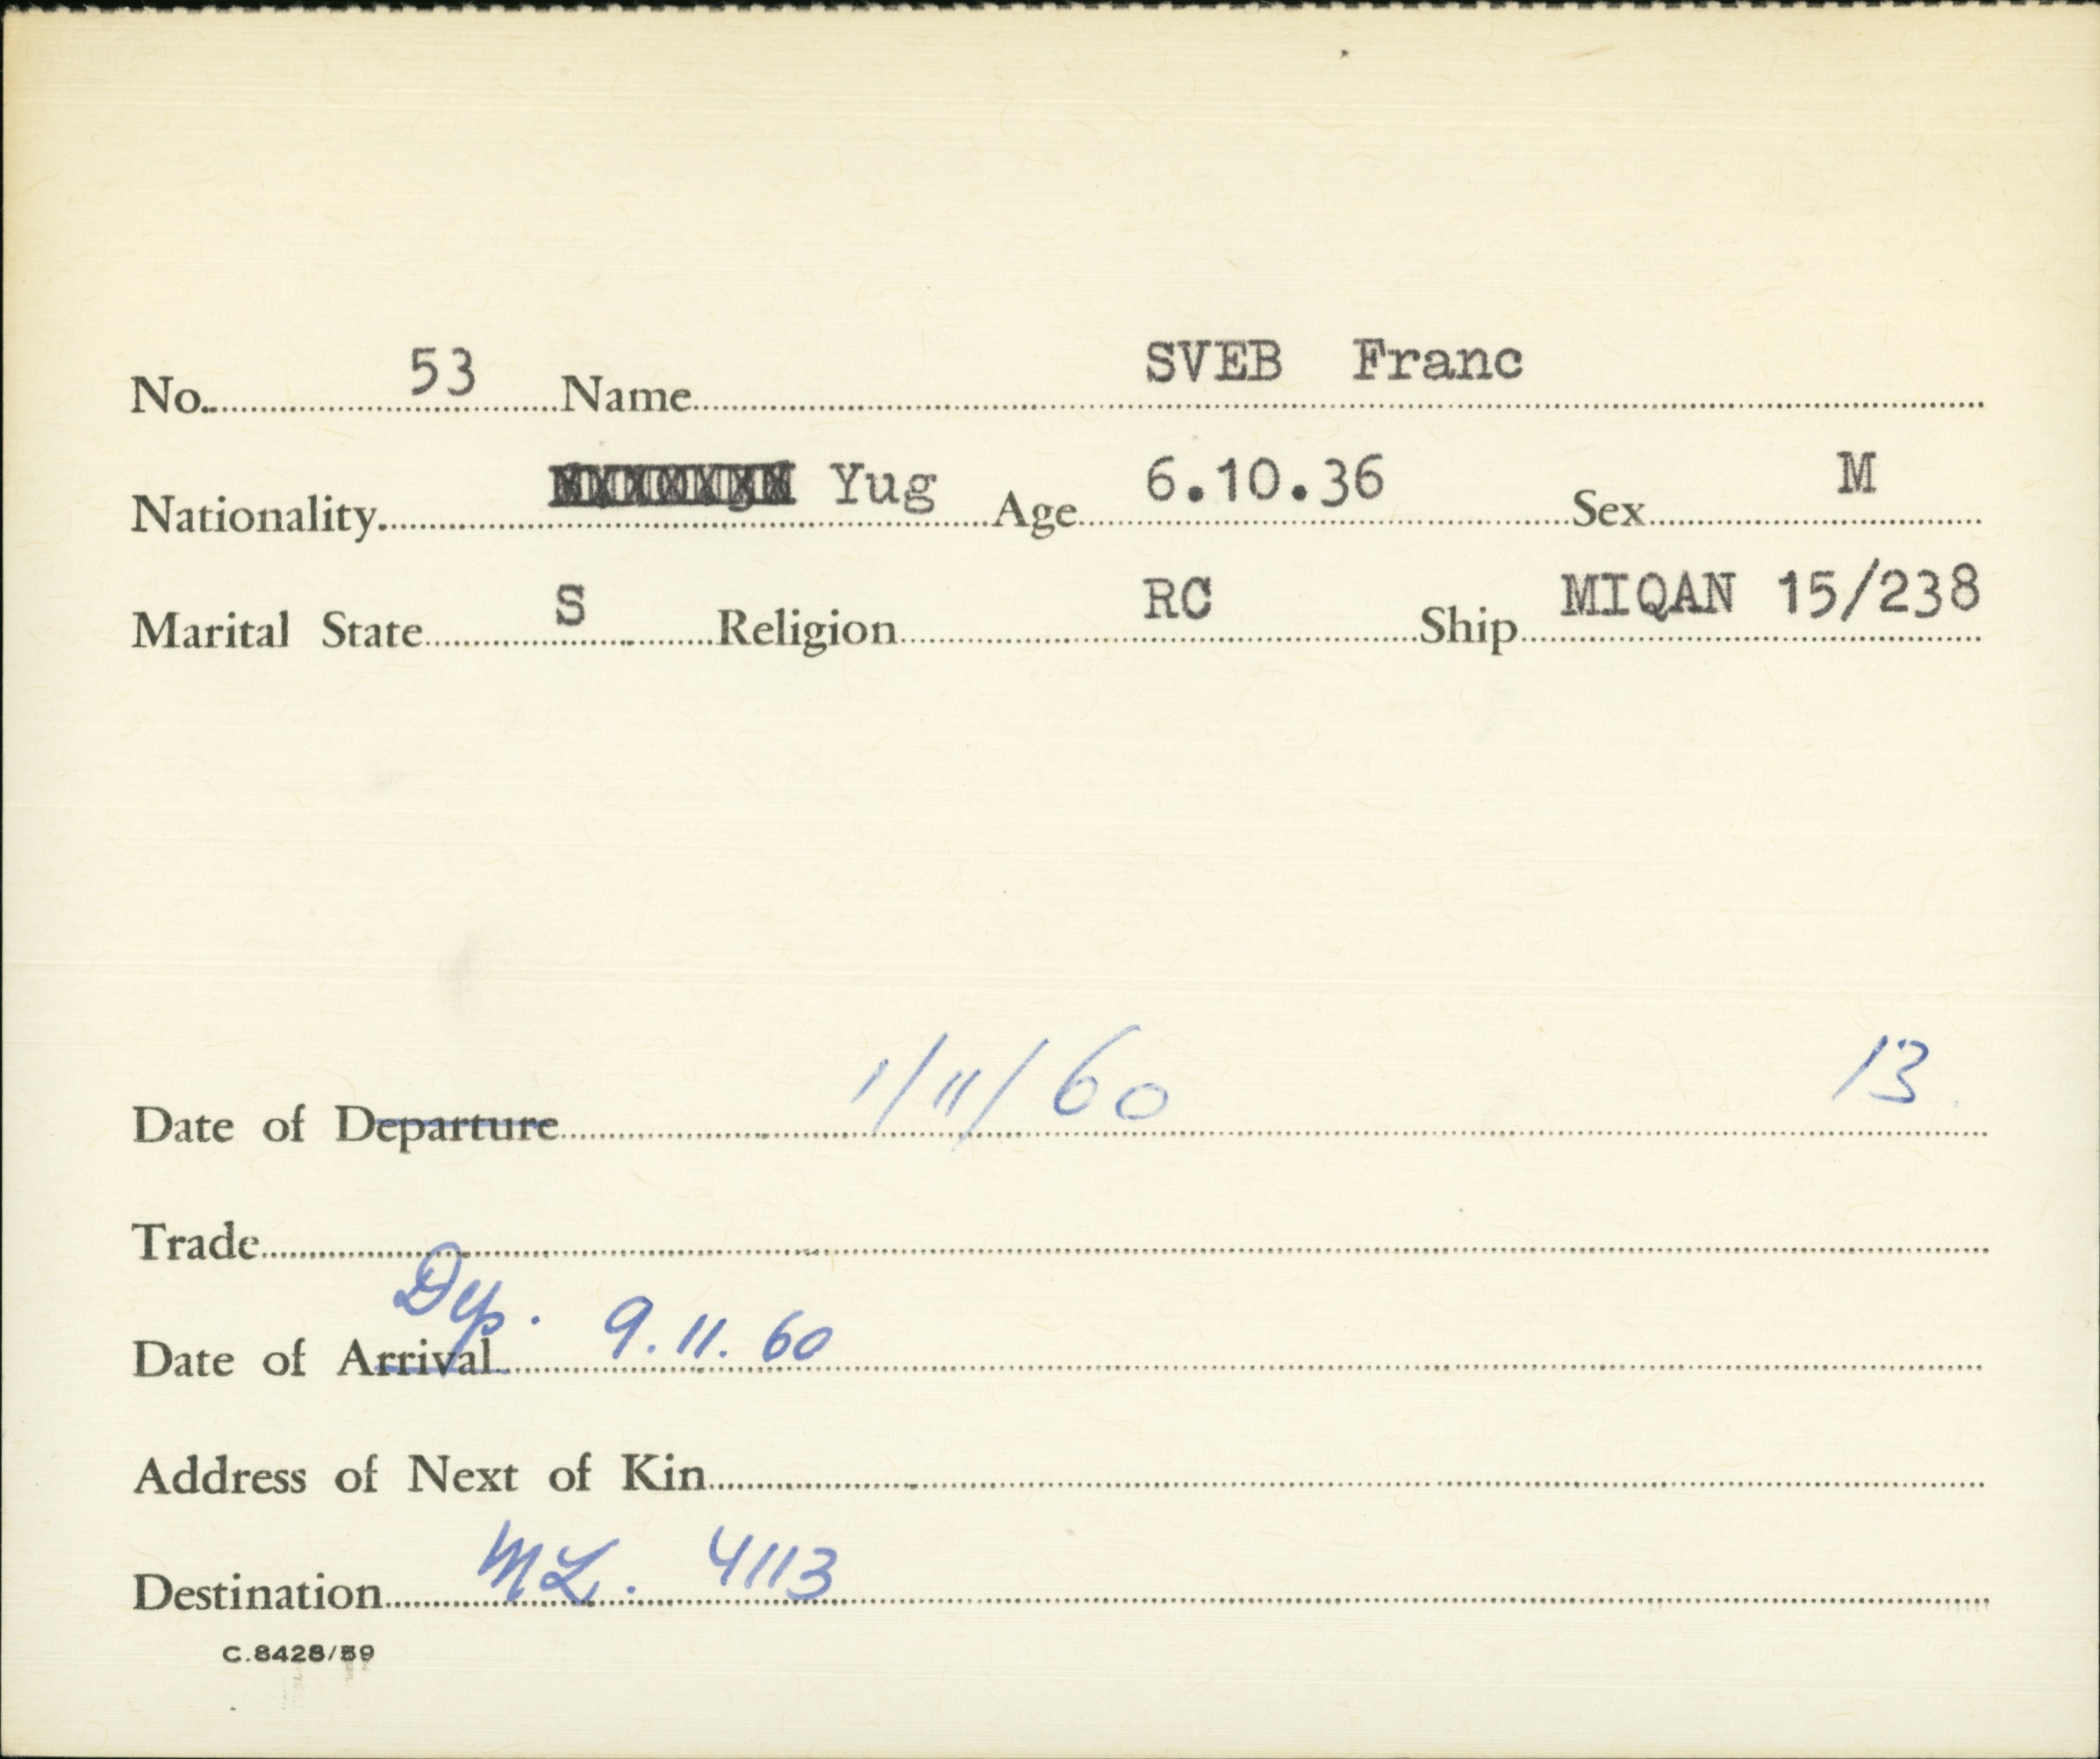 No. 53 Name SVEB Franc
Nationality Yug Age 6.10.36 Sex M
Marital State S Religion RC Ship MIQAN 15/238
Date of Departure 1/11/60 13
Trade
Dep. 9.11.60
Date of Arrival
Address of Next of Kin
Destination ML. 4113
C.8428/59